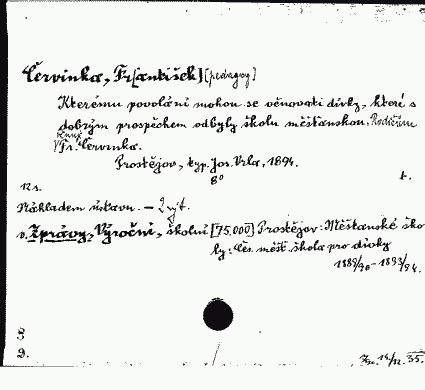 Červinka, Fr[antišek] [pedagog]
Kterému povolání mohou se věnovati dívky, které s
dobrým prospěchem odbyly školu měšťanskou. Rodičům
Fr. Červinka.
Prostějov, typ. Jos. Vrla, 1894.
8° t.
12 s.
Nákladem ústavu. — 2 výt.
v. Zprávy, Výroční, školní [75.000] Prostějov: Měšťanské ško
ly: Čes. měšť. škola pro dívky
1889/90 - 1893/94.